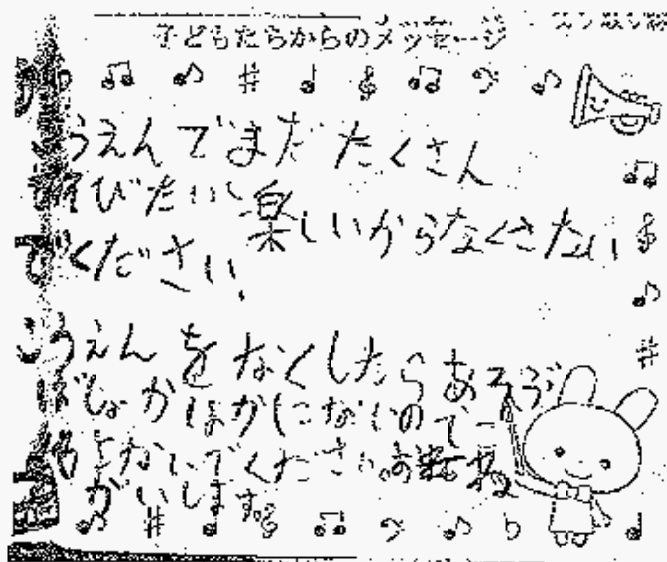 子どもたちからのメッセージ
こうえんでまだたくさん
遊びたいし楽しいからなくさない
でください
こうえんをなくしたらあそぶ
ばしょがほかにないので
なないでください。お
がいします。